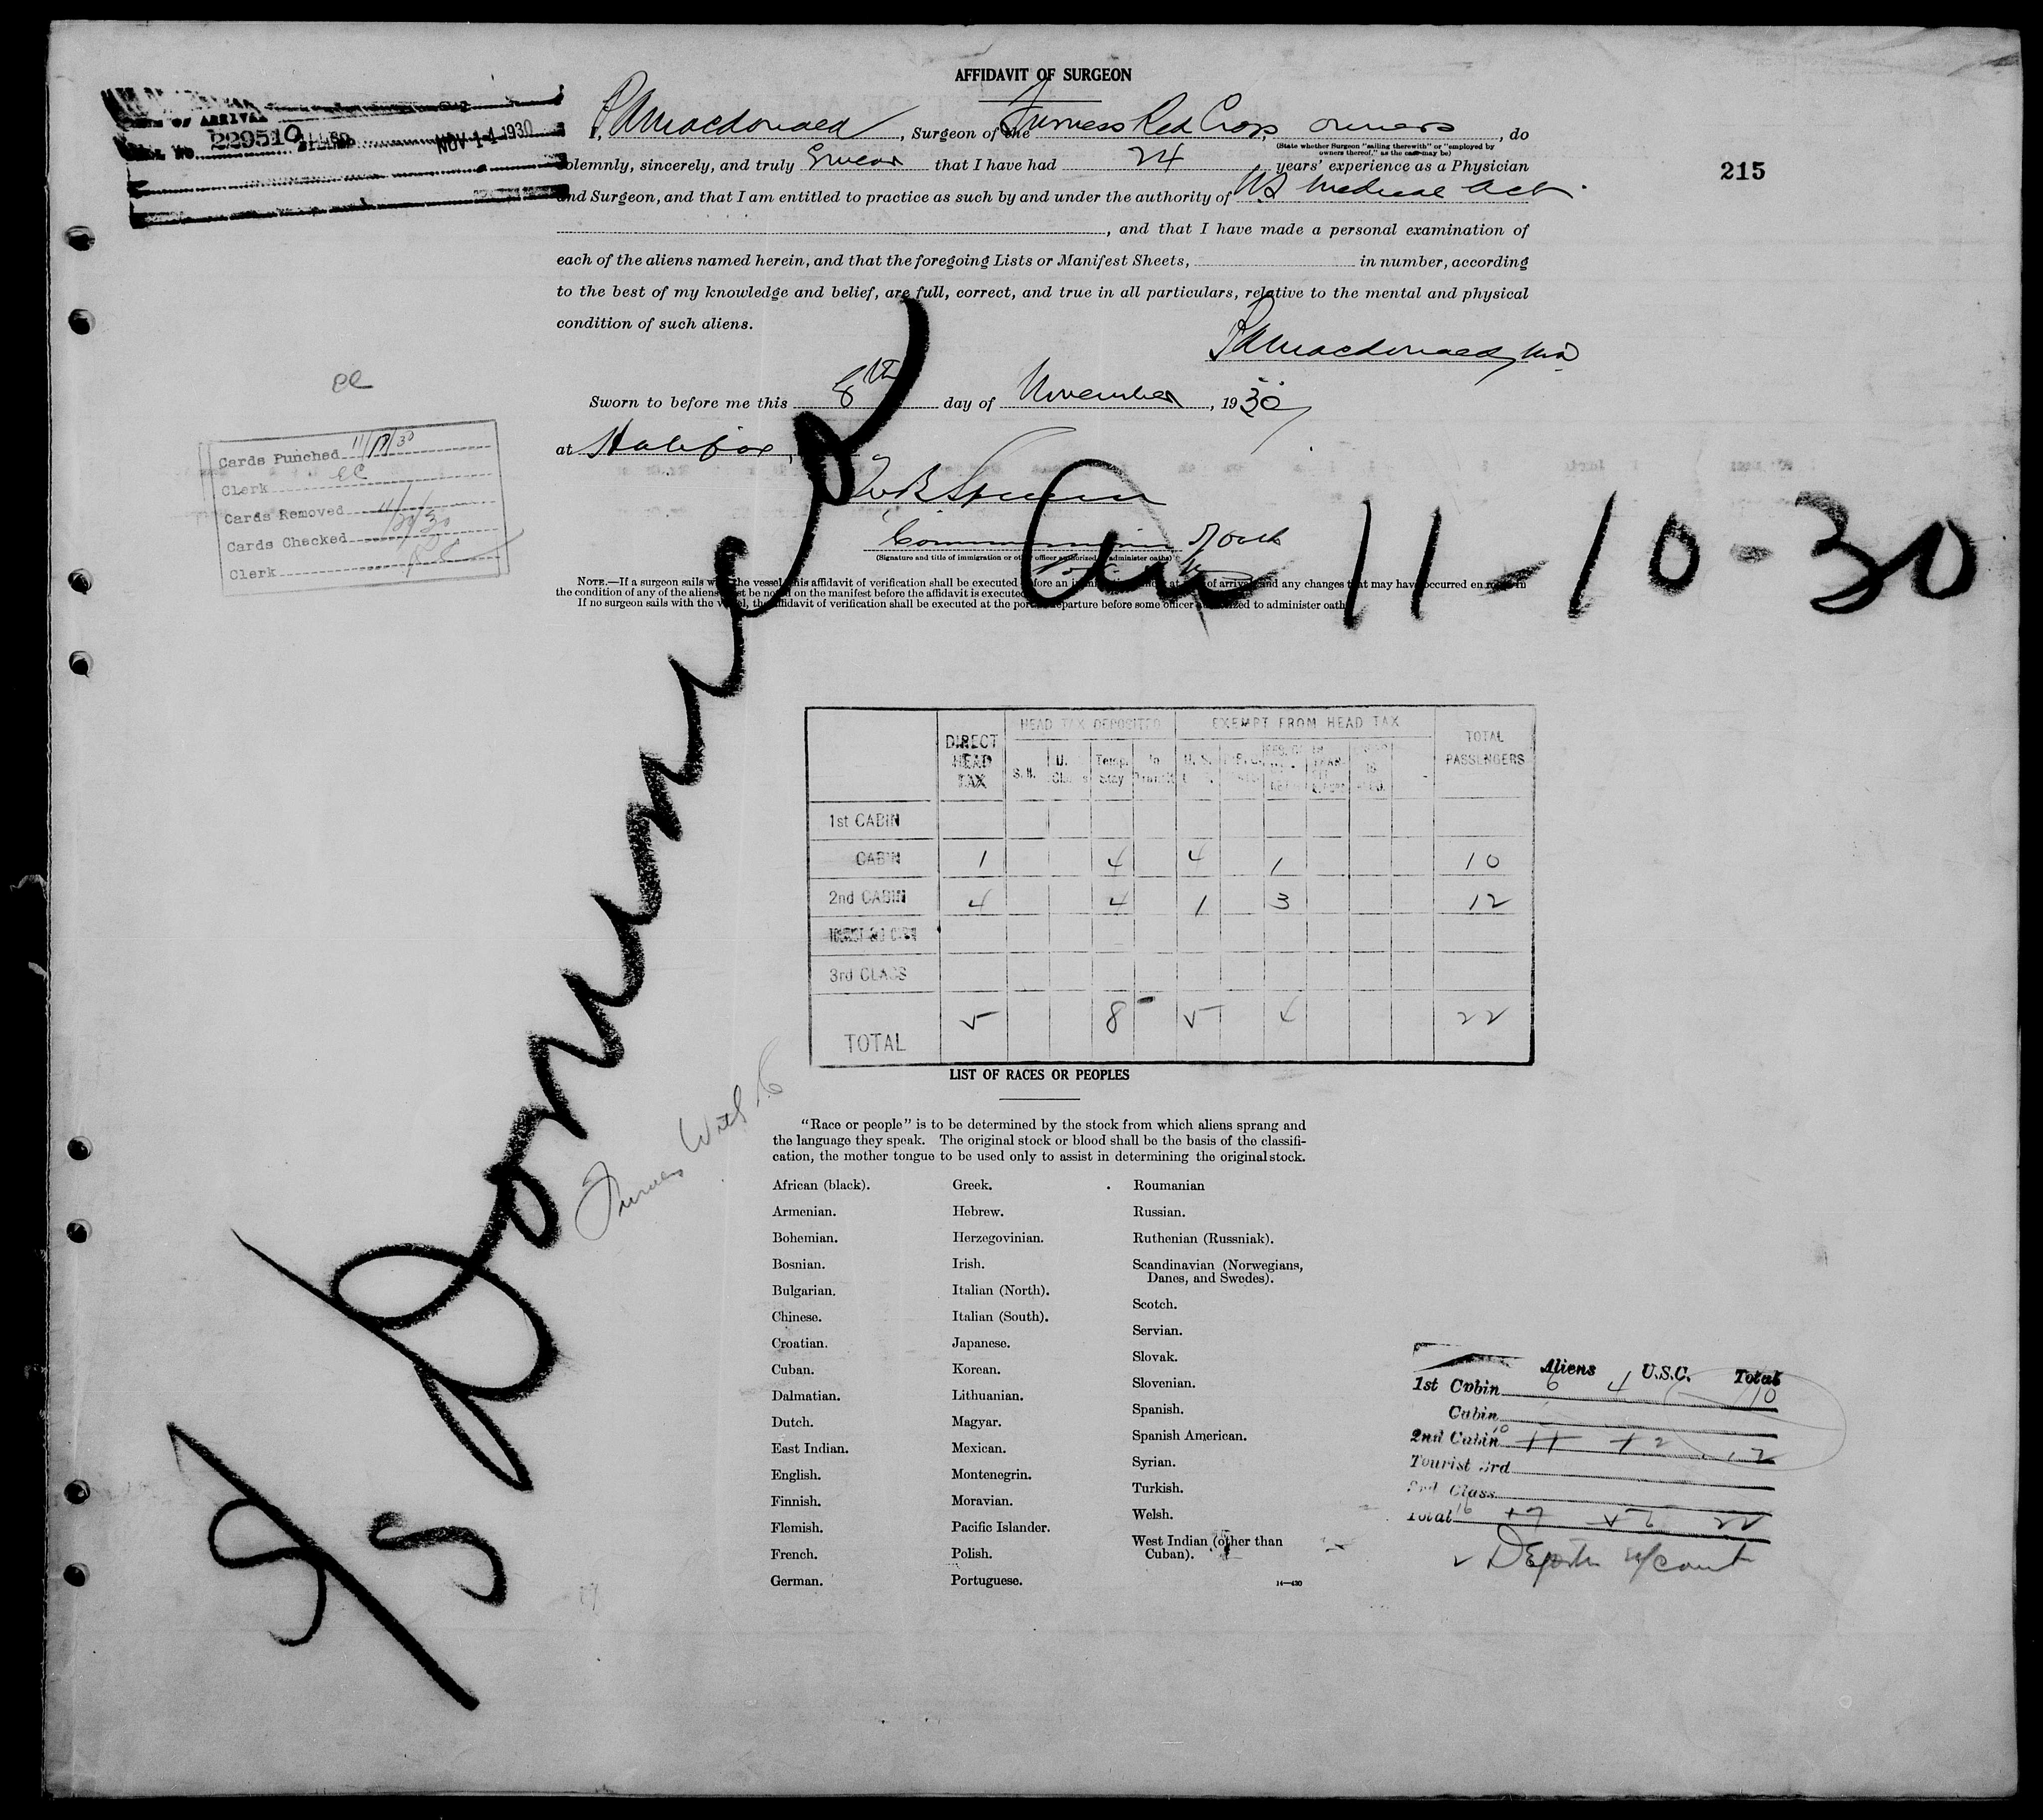 AFFIDAVIT OF SURGEON
OF ARRIVAL
229510 NOV 14 1930
215
I, P A Macdonald, Surgeon of the Furness Red Cross, owners, do
(State whether Surgeon "sailing therewith" or "employed by
owners thereof," as the case may be)
solemnly, sincerely, and truly Swear that I have had 24 years' experience as a Physician
and Surgeon, and that I am entitled to practice as such by and under the authority of NS Medical Act.
, and that I have made a personal examination of
each of the aliens named herein, and that the foregoing Lists or Manifest Sheets, in number, according
to the best of my knowledge and belief, are full, correct, and true in all particulars, relative to the mental and physical
condition of such aliens.
P A Macdonald, MD
Sworn to before me this 8th day of November, 1930
at Halifax,
Commissioner of Oath
(Signature and title of immigration or other officer authorized to administer oaths)
NOTE.—If a surgeon sails with the vessel, this affidavit of verification shall be executed before an at of arrival and any changes that may have occurred en route in
the condition of any of the aliens must be noted on the manifest before the affidavit is executed
If no surgeon sails with the vessel, the affidavit of verification shall be executed at the port of departure before some officer authorized to administer oath
Cards Punched 11/19/30
Clerk EC
Cards Removed
Cards Checked 11/20/30
Clerk
Arr 11-10-30
S/S Dominica
DIRECT HEAD TAX HEAD TAX DEPOSITED EXEMPT FROM HEAD TAX TOTAL PASSENGERS
S.H. U. Temp. Stay In Transit U.S.
1st CABIN
CABIN 1 4 4 1 10
2nd CABIN 4 4 1 3 12
3rd CLASS
TOTAL 5 8 5 4 22
Furness With
LIST OF RACES OR PEOPLES
"Race or people" is to be determined by the stock from which aliens sprang and
the language they speak. The original stock or blood shall be the basis of the classifi-
cation, the mother tongue to be used only to assist in determining the original stock.
African (black).
Armenian.
Bohemian.
Bosnian.
Bulgarian.
Chinese.
Croatian.
Cuban.
Dalmatian.
Dutch.
East Indian.
English.
Finnish.
Flemish.
French.
German.
Greek.
Hebrew.
Herzegovinian.
Irish.
Italian (North).
Italian (South).
Japanese.
Korean.
Lithuanian.
Magyar.
Mexican.
Montenegrin.
Moravian.
Pacific Islander.
Polish.
Portuguese.
Roumanian
Russian.
Ruthenian (Russniak).
Scandinavian (Norwegians,
Danes, and Swedes).
Scotch.
Servian.
Slovak.
Slovenian.
Spanish.
Spanish American.
Syrian.
Turkish.
Welsh.
West Indian (other than
Cuban).
Aliens U.S.C. Total
1st Cabin 6 4 10
Cabin
2nd Cabin 10 11 1 2 12
Tourist 3rd
3rd Class
Total 16 17 5 6 22